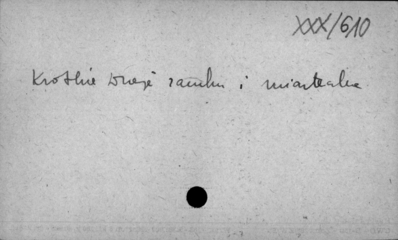 XXX/610
Krótkie dzieje zamku i miasteczka